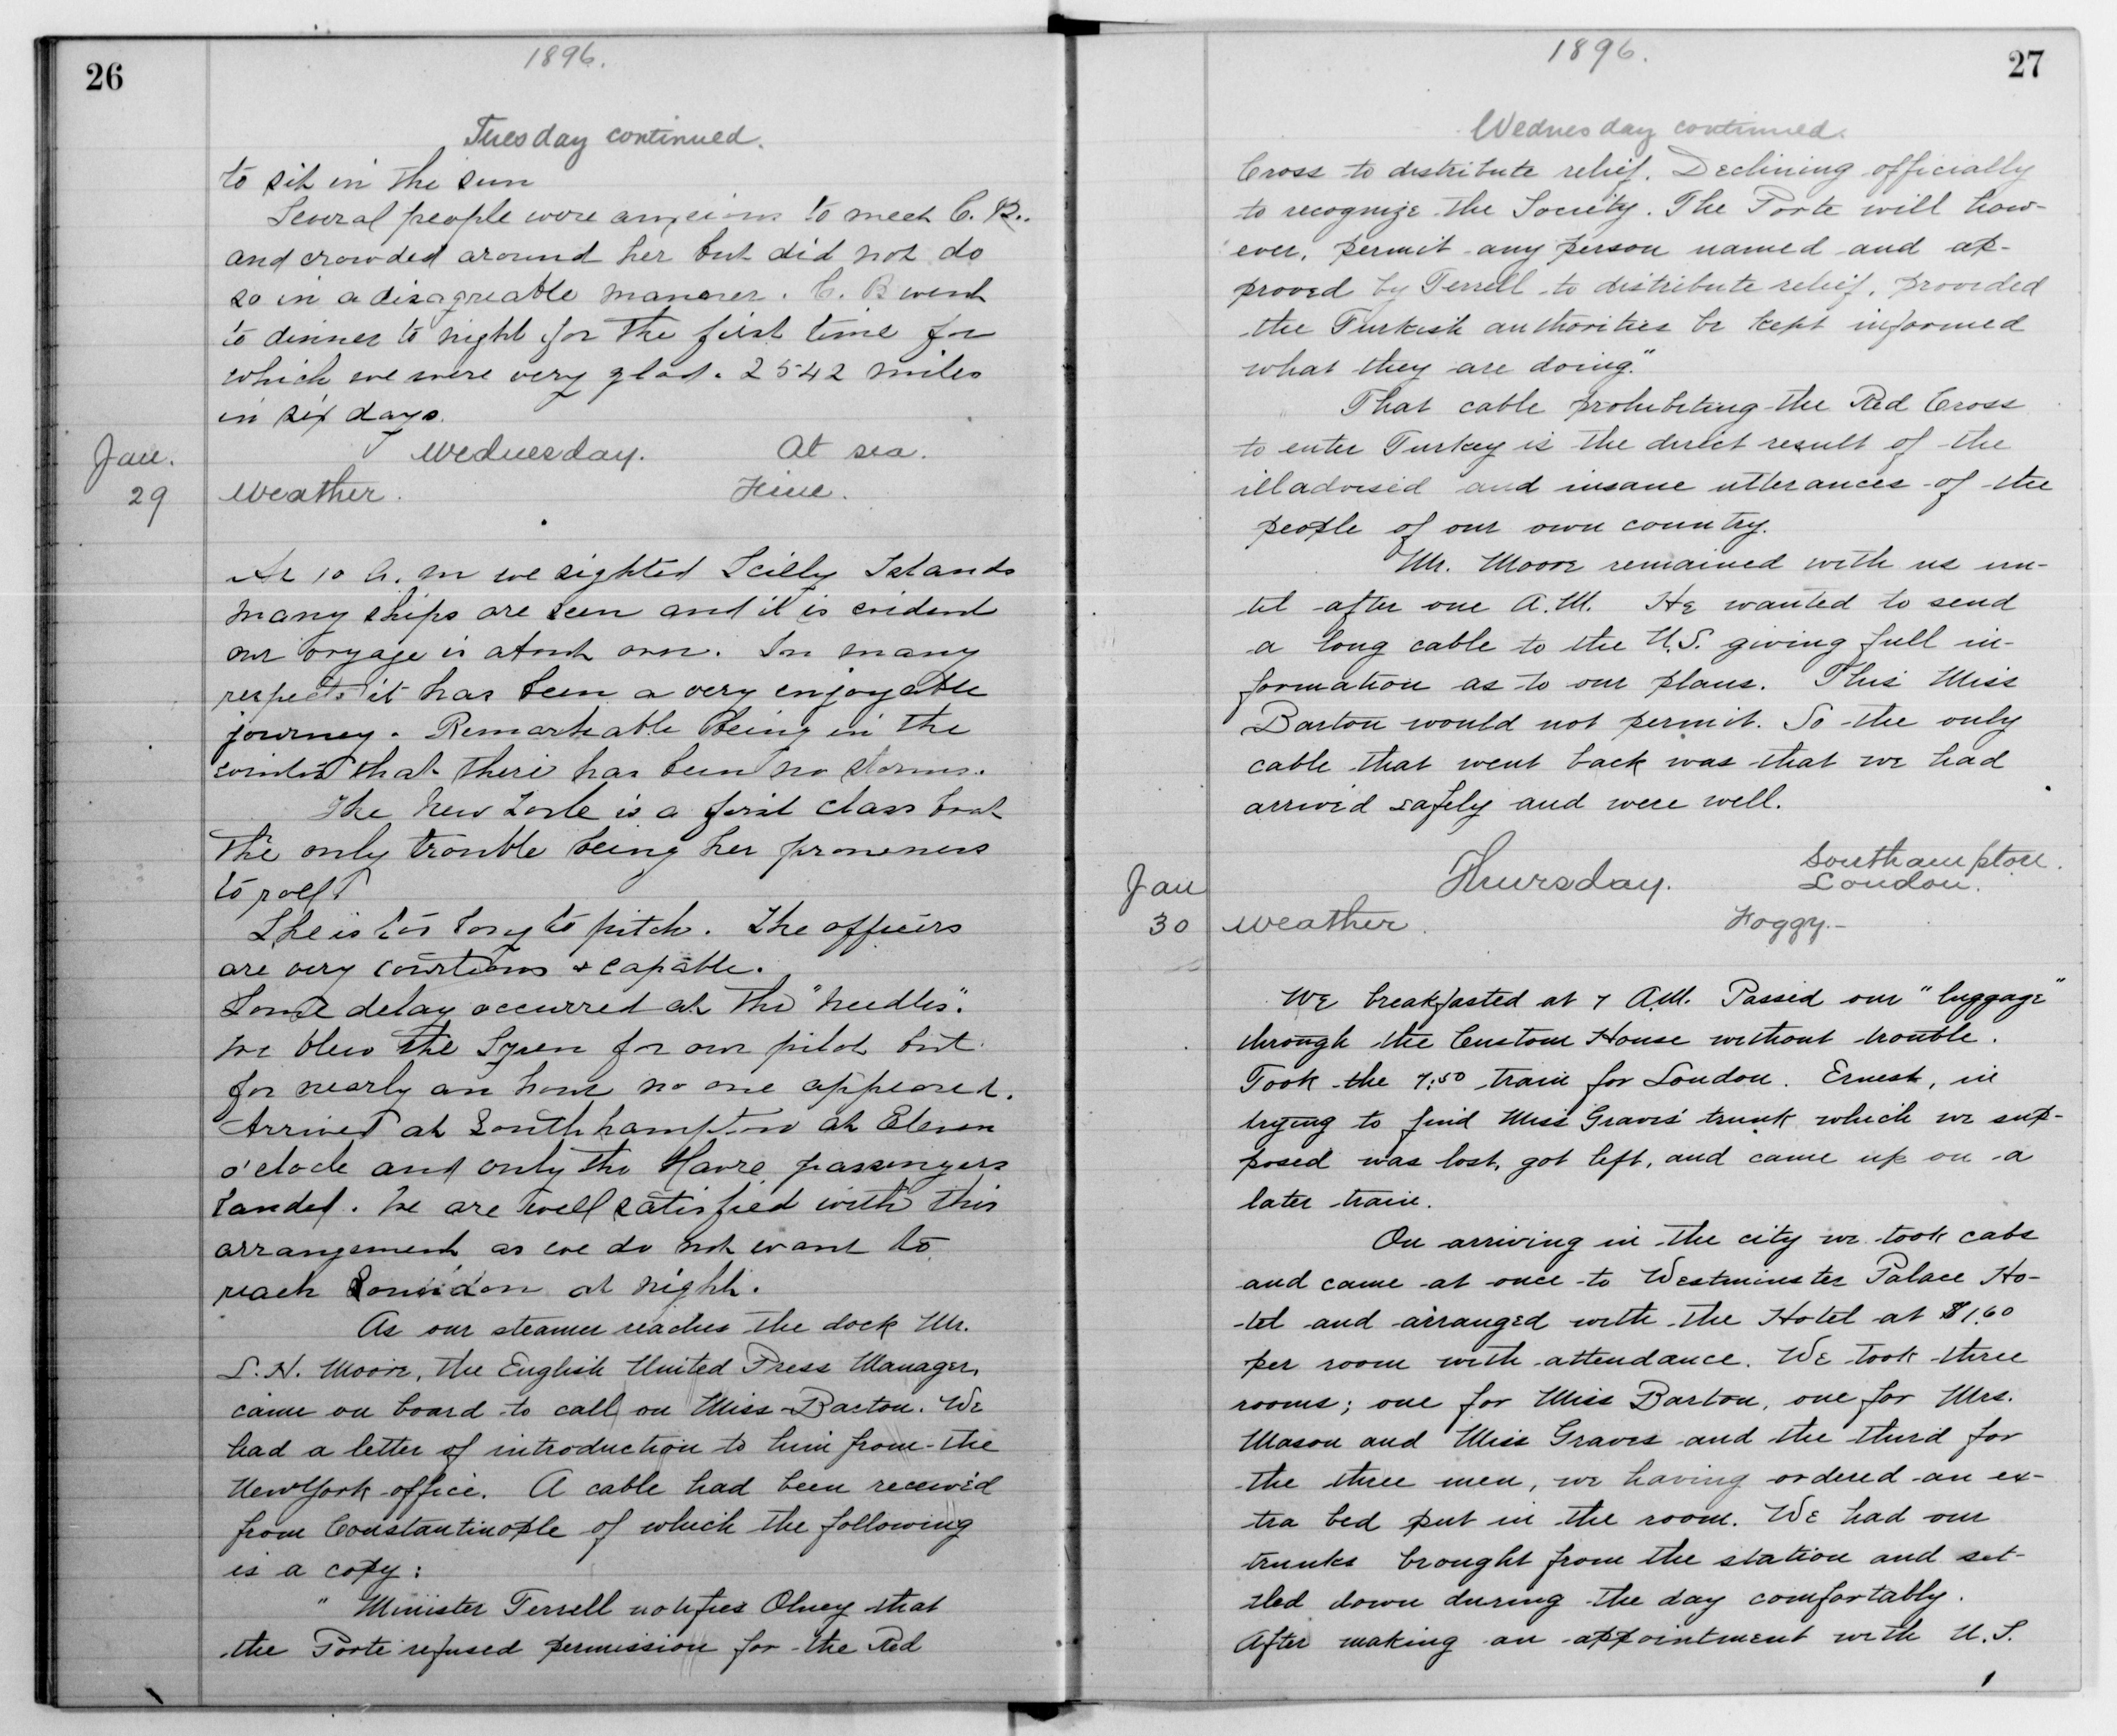 26
1896.
Tuesday continued.
to sit in the sun
Several people were anxious to meet C. B.
and crowded around her but did not do
so in a disagreable manner. C. B went
to dinner to night for the first time for
which we were very glad. 2542 miles
in six days.
Jan. Wednesday. At sea.
29 Weather. Fine.
At 10 A. M we sighted Scilly Islands
Many ships are seen and it is evident
our voyage is about over. In many
respects it has been a very enjoyable
journey. Remarkable being in the
winter that there has been no storms.
The New York is a first class boat
The only trouble being her proneness
to roll
She is too long to pitch. The officers
are very courteous & capable.
Some delay occurred at the "Needles".
We blew the Syren for our pilot but
for nearly an hour no one appeared.
Arrived at Southhampton at Eleven
o'clock and only the Havre passengers
landed. We are well satisfied with this
arrangement as we do not want to
reach London at night.
As our steamer reaches the dock Mr.
L. N. Moore, the English United Press Manager,
came on board to call on Miss Barton. We
had a letter of introduction to him from the
New York office. A cable had been received
from Constantinople of which the following
is a copy:
" Minister Terrell notifies Olney that
the Porte refused permission for the Red
1896.
27
Wednesday continued.
Cross to distribute relief. Declining officially
to recognize the Society. The Porte will how-
ever, permit any person named and ap-
proved by Terrell to distribute relief, provided
the Turkish authorities be kept informed
what they are doing."
That cable prohibiting the Red Cross
to enter Turkey is the direct result of the
illadvised and insane utterances of the
people of our own country.
Mr. Moore remained with us un-
til after one A.M. He wanted to send
a long cable to the U.S. giving full in-
formation as to our plans. This Miss
Barton would not permit. So the only
cable that went back was that we had
arrived safely and were well.
Southampton.
Jan Thursday. London.
30 Weather. Foggy.-
We breakfasted at 7 A.M. Passed our "luggage"
through the Custom House without trouble.
Took the 7:50 train for London. Ernest, in
trying to find Miss Graves' trunk which we sup-
posed was lost, got left, and came up on a
later train.
On arriving in the city we took cabs
and came at once to Westminster Palace Ho-
tel and arranged with the Hotel at $1.60
per room with attendance. We took three
rooms; one for Miss Barton, one for Mrs.
Mason and Miss Graves and the third for
the three men, we having ordered an ex-
tra bed put in the room. We had our
trunks brought from the station and set-
tled down during the day comfortably.
After making an appointment with U.S.